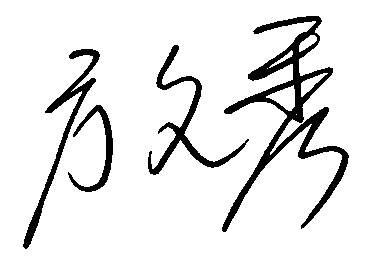 方文秀